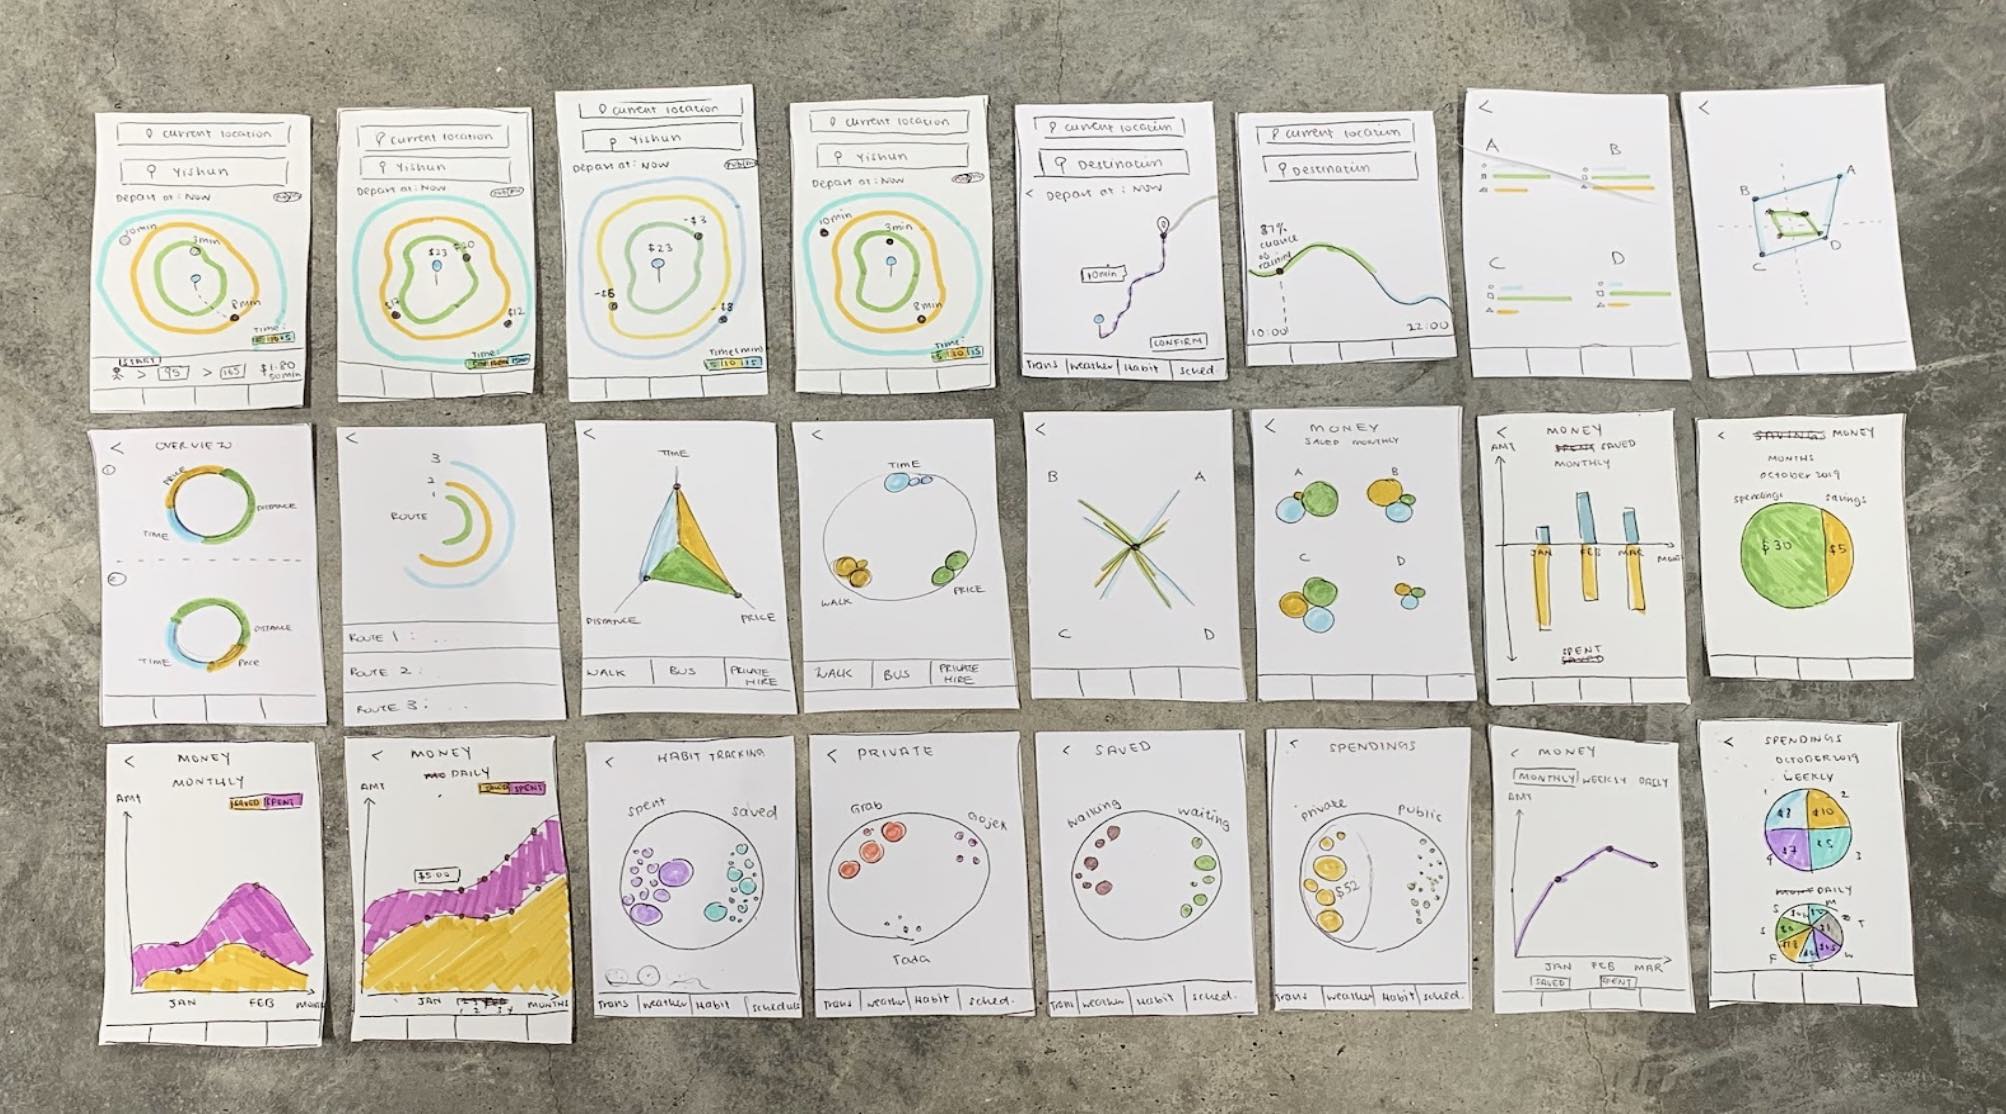 current location
Yishun
Depart at: NOW
10min
3min
8min
Time:
START
> 95 > 165 $1.80
50min
current location
Yishun
Depart at: NOW
$23
$12
Time:
current location
Yishun
Depart at: NOW
-$3
$23
-$6
-$8
Time(min)
5 10 15
current location
Yishun
Depart at: NOW
10min
3min
8min
Time:
5 10 15
current location
Destination
< Depart at: NOW
10min
CONFIRM
Trans Weather Habit Sched.
current location
Destination
87%
chance
of
raining
10:00
22:00
<
A
B
C
D
<
B
A
D
C
<
OVERVIEW
1
DISTANCE
TIME
2
DISTANCE
TIME
PRICE
<
3
2
1
ROUTE
ROUTE 1: ..
ROUTE 2:
ROUTE 3: ..
<
TIME
DISTANCE
PRICE
WALK BUS PRIVATE
HIRE
<
TIME
WALK
PRICE
WALK BUS PRIVATE
HIRE
<
B
A
C
D
< MONEY
SAVED MONTHLY
A
B
C
D
< MONEY
AMT
SAVED
MONTHLY
JAN FEB MAR
SPENT
SAVED
< SAVINGS MONEY
MONTHS
October 2019
spendings savings
$30 $5
< MONEY
MONTHLY
AMT
SAVED SPENT
JAN FEB MONTHS
< MONEY
DAILY
AMT
SPENT
$5.00
JAN MONTHS
< HABIT TRACKING
spent saved
Trans Weather Habit Schedule
< PRIVATE
Grab
Gojek
Tada
Trans Weather Habit Sched.
< SAVED
walking waiting
Trans Weather Habit Sched.
< SPENDINGS
private public
$52
Trans Weather Habit Sched.
< MONEY
MONTHLY WEEKLY DAILY
AMT
JAN FEB MAR
SAVED SPENT
< SPENDINGS
OCTOBER 2019
WEEKLY
1 2
$8 $10
$7 $5
4 3
DAILY
S M
S T
F W
T